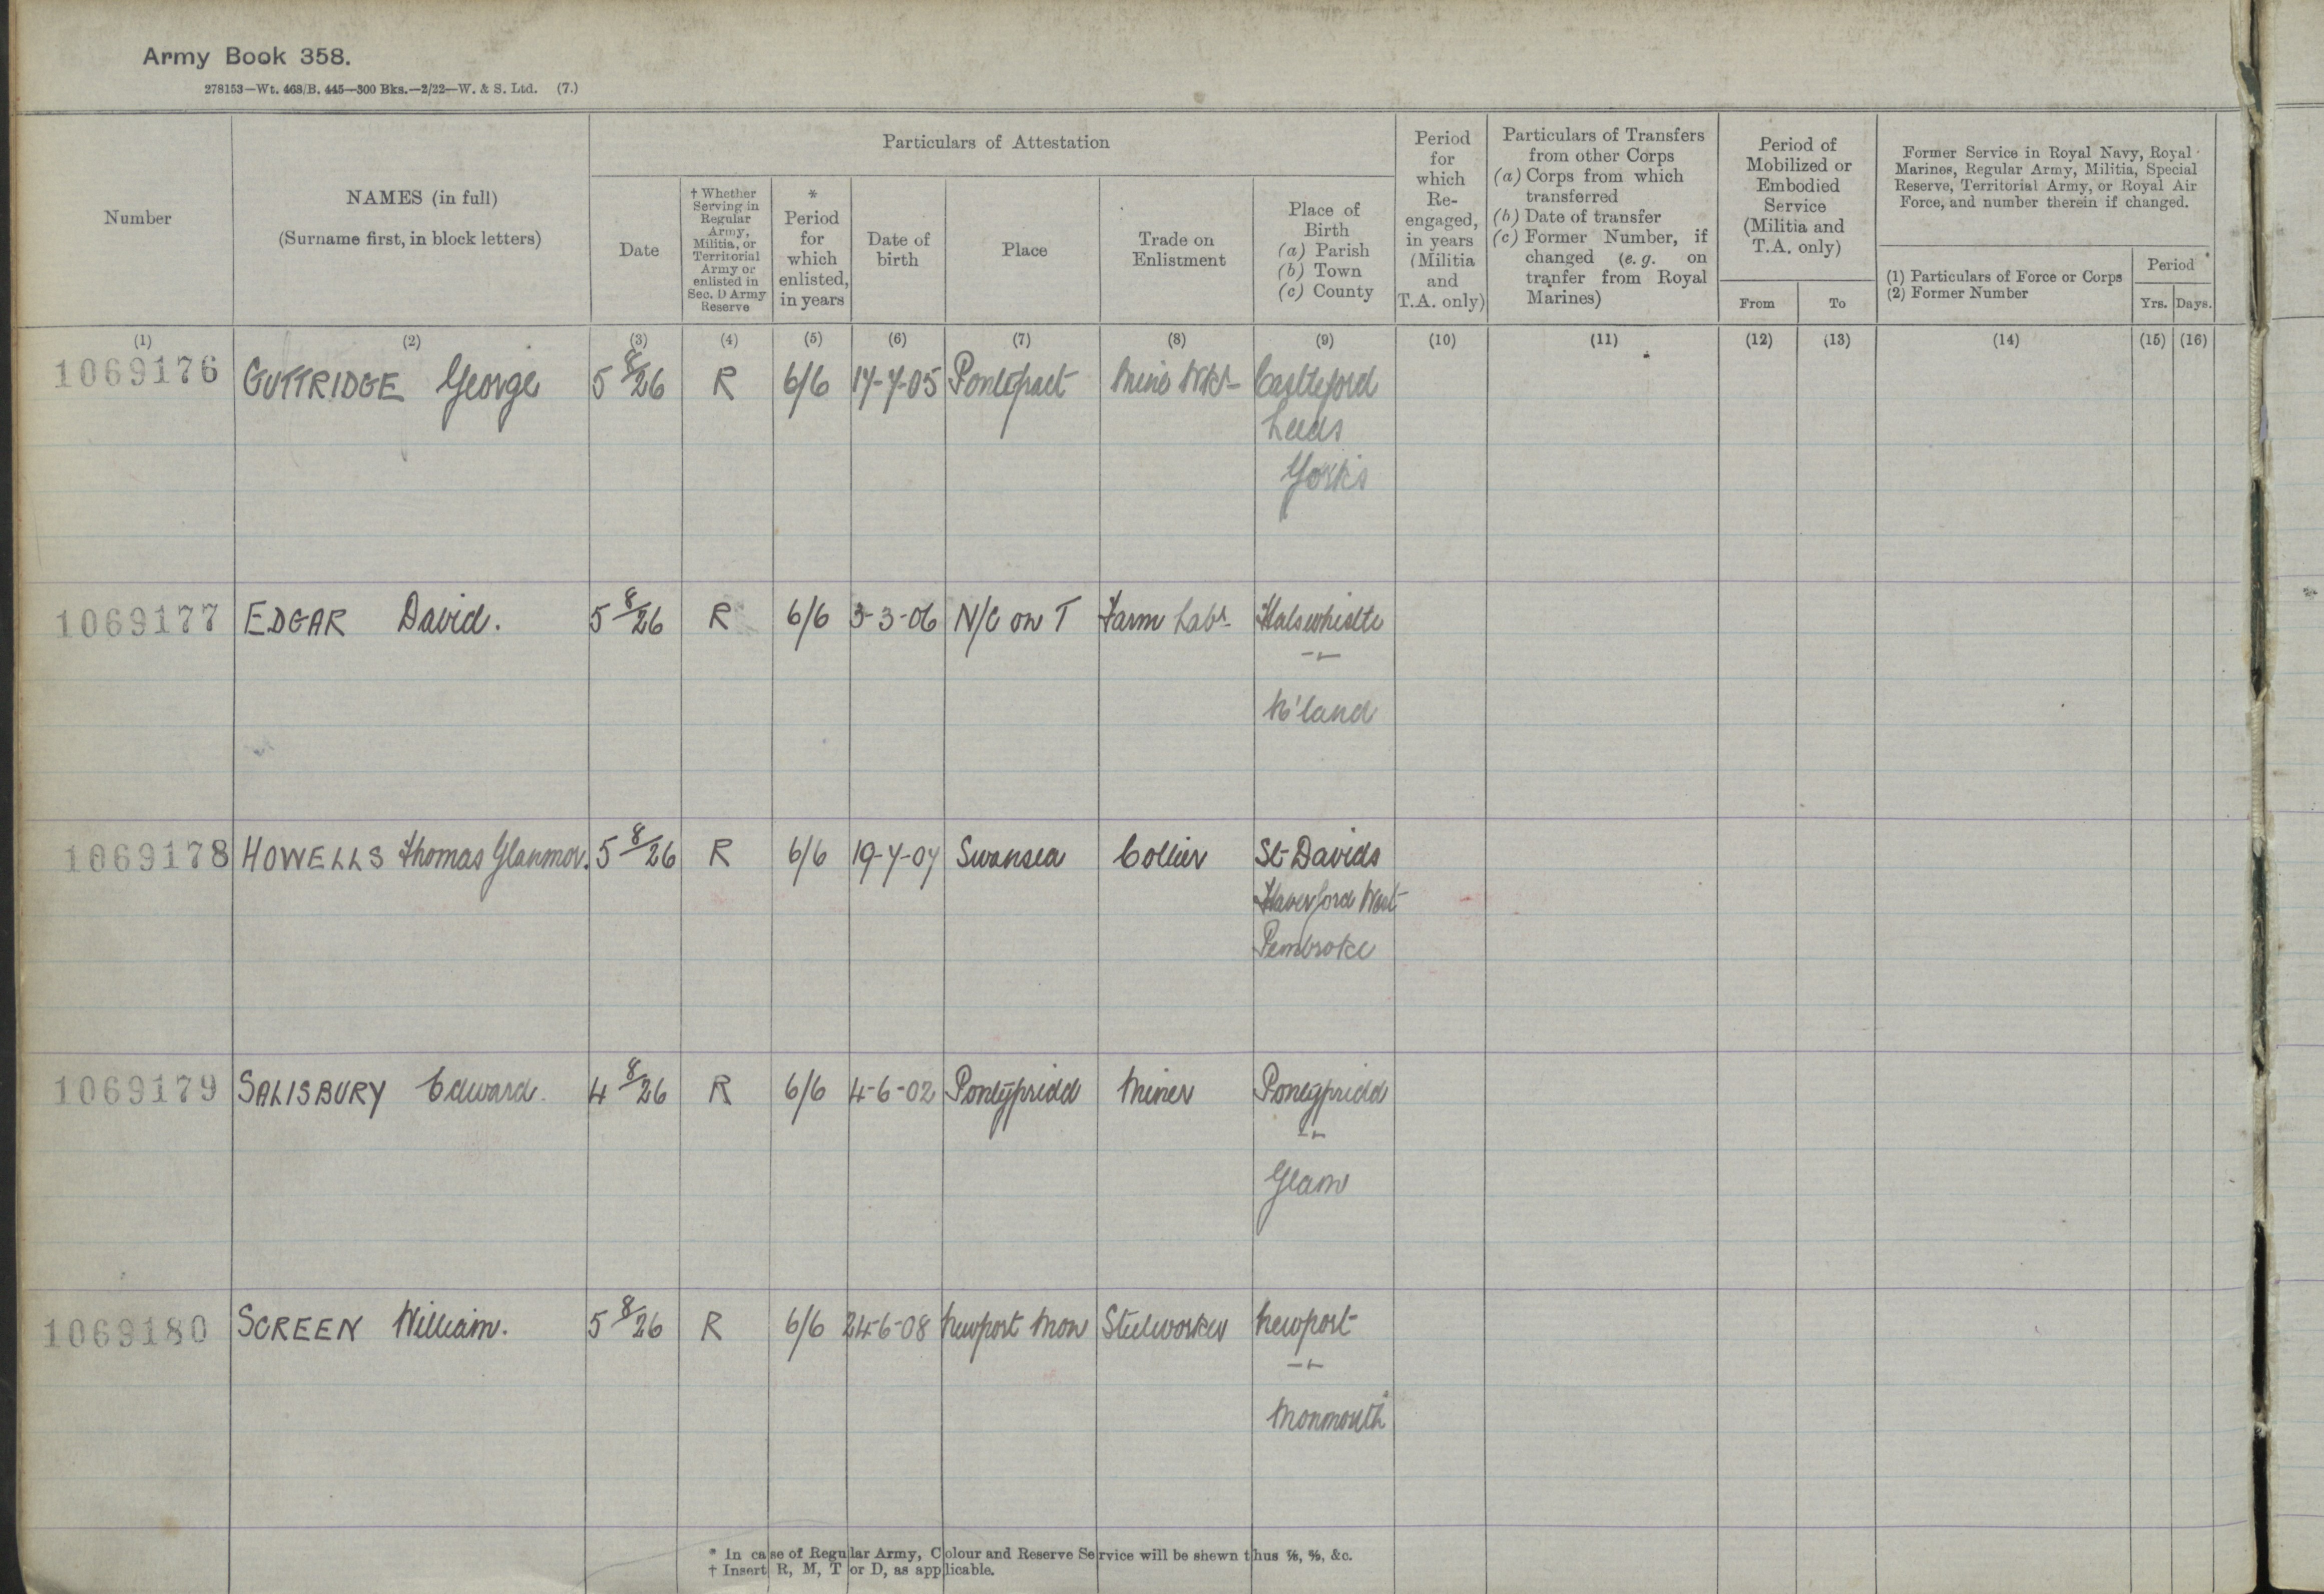 Army Book 358.
278153—Wt. 468/B. 445—300 Bks.—2/22—W. & S. Ltd. (7.)
Number
NAMES (in full)
(Surname first, in block letters)
Particulars of Attestation
Date
† Whether
Serving in
Regular
Army,
Militia, or
Territorial
Army or
enlisted in
Sec. D Army
Reserve
*
Period
for
which
enlisted,
in years
Date of
birth
Place
Trade on
Enlistment
Place of
Birth
(a) Parish
(b) Town
(c) County
Period
for
which
Re-
engaged,
in years
(Militia
and
T.A. only)
Particulars of Transfers
from other Corps
(a) Corps from which
transferred
(b) Date of transfer
(c) Former Number, if
changed (e.g. on
tranfer from Royal
Marines)
Period of
Mobilized or
Embodied
Service
(Militia and
T.A. only)
From To
Former Service in Royal Navy, Royal
Marines, Regular Army, Militia, Special
Reserve, Territorial Army, or Royal Air
Force, and number therein if changed.
(1) Particulars of Force or Corps
(2) Former Number
Period
Yrs. Days.
(1) (2) (3) (4) (5) (6) (7) (8) (9) (10) (11) (12) (13) (14) (15) (16)
1069176 GUTTRIDGE George 5 8/26 R 6/6 17-7-05 Pontefract Mine Wkr Castleford
Leeds
Yorks
1069177 EDGAR David. 5 8/26 R 6/6 3-3-06 N/C on T Farm Labr Halswhistle
-"-
N'land
1069178 HOWELLS Thomas Glanmor. 5 8/26 R 6/6 19-7-07 Swansea Collier St Davids
Haverford West
Pembroke
1069179 SALISBURY Edward. 4 8/26 R 6/6 4-6-02 Pontypridd Miner Pontypridd
-"-
Glam
1069180 SCREEN William. 5 8/26 R 6/6 24-6-08 Newport Mon Steelworker Newport
-"-
Monmouth
* In case of Regular Army, Colour and Reserve Service will be shewn thus ⅞, &c.
† Insert R, M, T or D, as applicable.